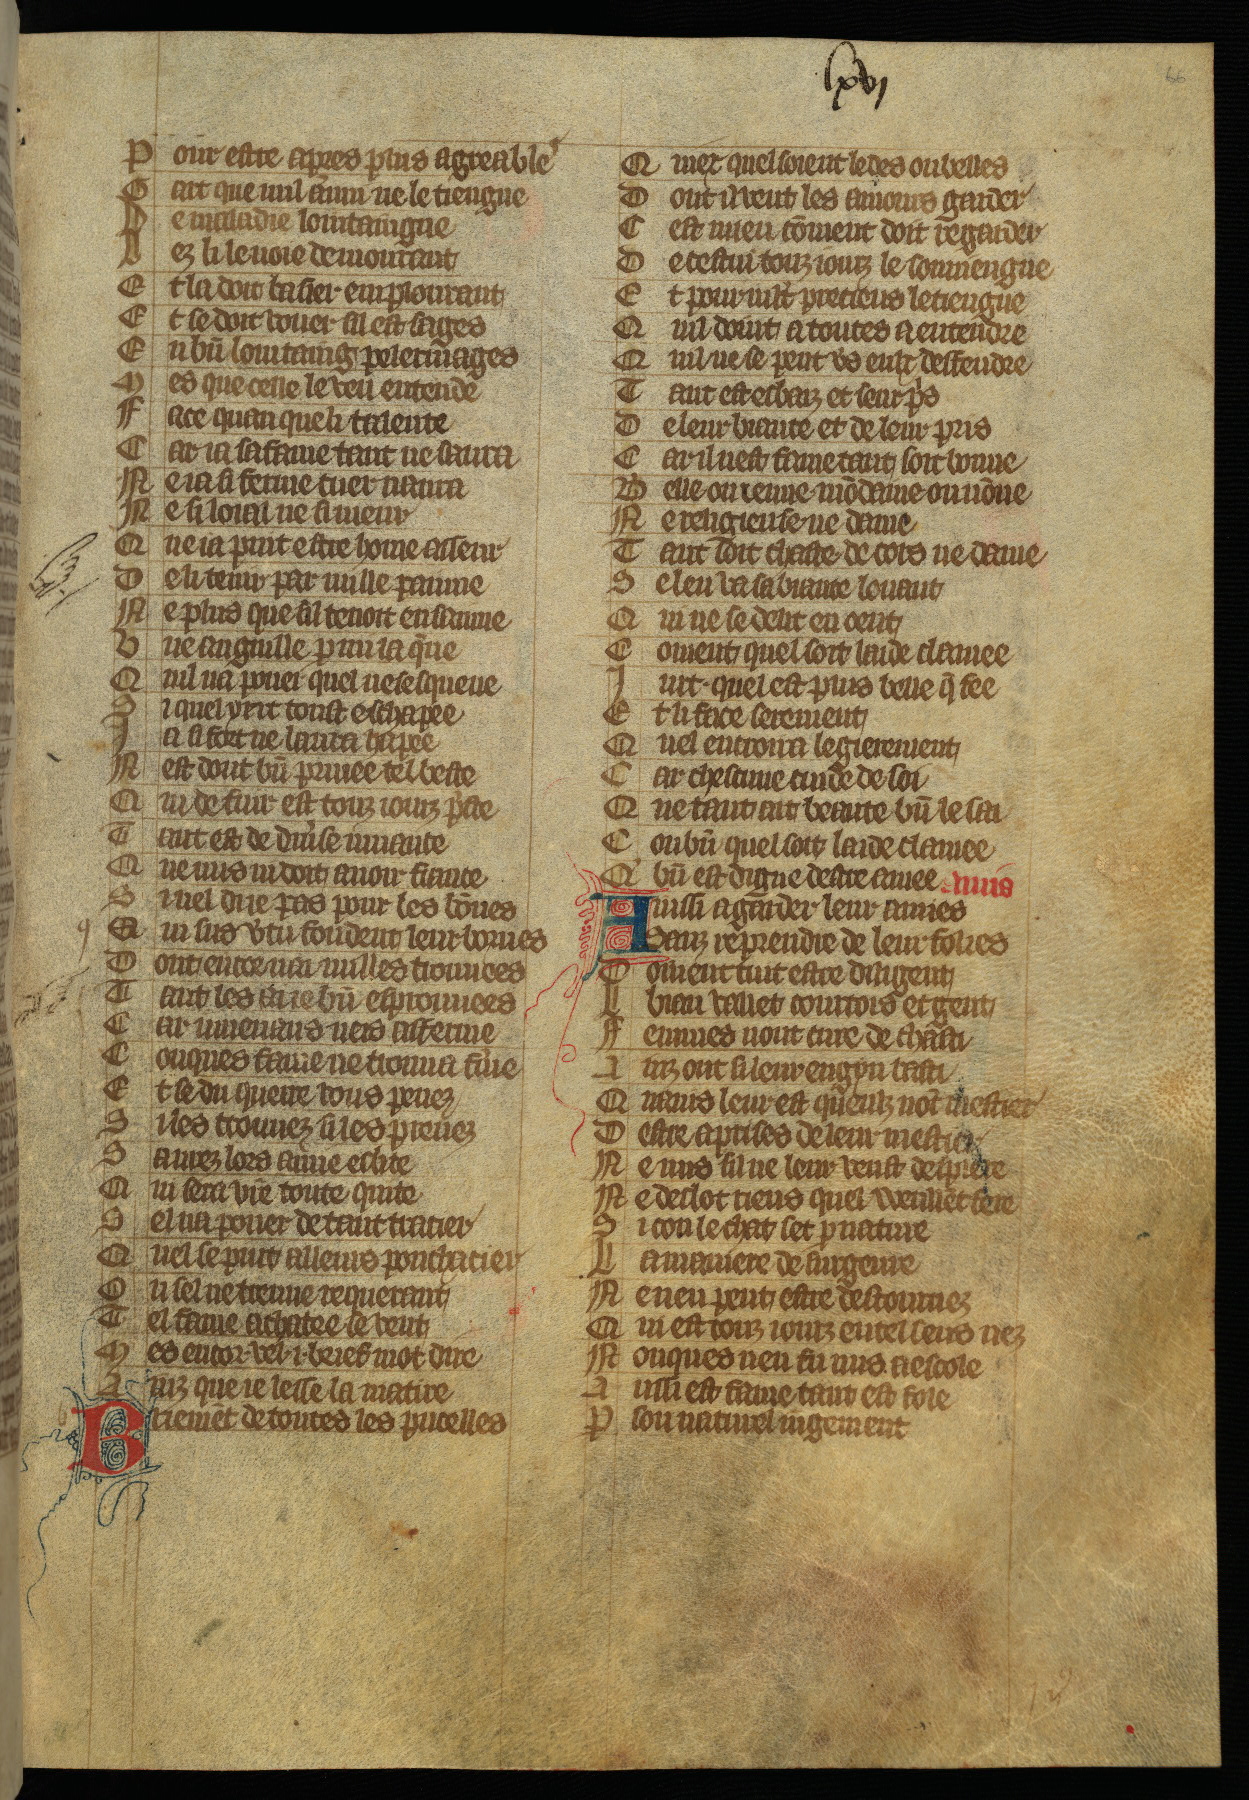 lxvi
66
Pour estre apres plus agreable
Gart que nul ainn ne le tiengne
De maladie lointaingne
Lez li le voie demourant
Et la doit baisier em plourant
Et se doit vouer sil est sages
En bn̄ lointaing pelerinages
Mes que celle le veu entende
Face quan que li talente
Car ia sa fame tant ne saura
Ne ia si ferme cuer naura
Ne si loial ne si meur
Que ia puist estre home asseur
De li tenir par nulle painne
Ne plus que sil tenoit en sainne
Vne anguille parmi la q̄ue
Quil na pouer quel ne sesqueue
Si quel yert tost eschapee
Ia si fort ne laura hapee
Nest dont bn̄ priuee tel beste
Qui de fuir est touz iourz p̄ste
Tant est de diuse muance
Que nus ni doit auoir fiance
Si nel die pas pour les bōnes
Qui sus vtu fondent leur bornes
Dont encor nai nulles trouuees
Tant les aie bn̄ esprouuees
Car
Conques fame ne trouua
Et se du querre vous penez
Sil les trouuez si les prenez
Saurez lors amie eslite
Qui sera vr̄e toute quite
Sel na pouer de tant tracier
Quel se puit alleurs pourchacier
Ou sel ne treuue requerant
Tel fame achatee se vent
Mes encor vel .i. brief mot dire
Ainz que ie lesse la matire
Briemēt de toutes les pucelles
Quiex quel soient ledes ou belles
Dont il veut les amours garder
Cest mien cōment doit regarder
De cestui touz iourz le souuiengne
Et pour mlt precieus le tiengne
Quil doint a toutes a entendre
Quil ne se peut vs eulz deffendre
Tant est esbaiz et seurp̄s
De leur biaute et de leur pris
Car il nest fame tant soit bonne
Vielle ou ienne mōdaine ou nōne
Ne religieuse ne dame
Tant soit chaste de cors ne dame
Se len va sa biaute louant
Qui ne se delit en oent
Coment quel soit laide clamee
Iurt quel est plus belle q̄ fee
Et li face serement
Quel entroura legierement
Car chescune cuide de soi
Que tant ait beaute bn̄ le sai
Con bn̄ quel soit laide clamee
Q̄ bn̄ est digne destre amee amis
Aussi a garder leur amies
Sanz reprendre de leur folies
Doiuent tuit estre diligent
Li biau vallet courtois et gent
Femmes nont cure de chasti
Ainz ont si leur engyn basti
Quauis leur est quenlz not mestier
Destre aprises de leur mestier
Ne nus sil ne leur veust desplere
Ne deslot riens quel weullēt fere
Si con le chat set p nature
La maniere de surgeure
Ne nen peut estre destournez
Qui est touz iourz en tel sens nez
Nonques nen fu mis a escole
Aussi est fame tant est fole
P son naturel iugement